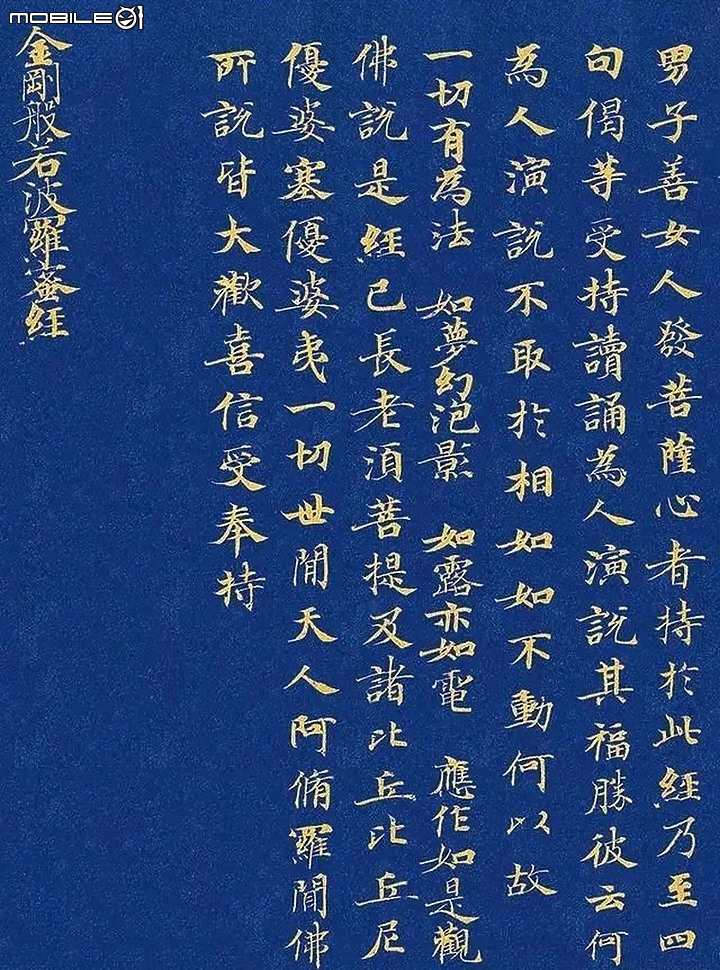 MOBILE01
男子善女人發菩薩心者持於此經乃至四
句偈等受持讀誦為人演說其福勝彼云何
為人演說不取於相如如不動何以故
一切有為法 如夢幻泡影 如露亦如電 應作如是觀
佛說是經已長老須菩提及諸比丘比丘尼
優婆塞優婆夷一切世間天人阿脩羅聞佛
所說皆大歡喜信受奉持
金剛般若波羅蜜經